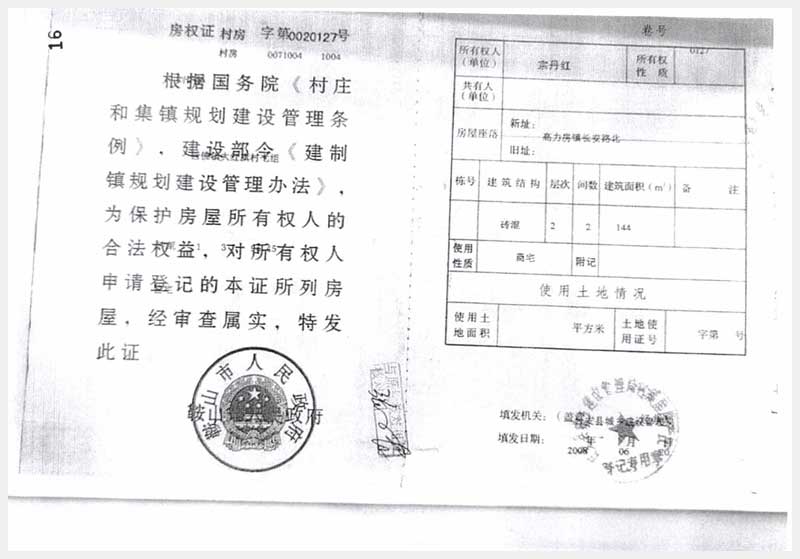 16
房权证 村房 字第0020127号
村房 0071004 1004
根据国务院《村庄
和集镇规划建设管理条
例》，建设部令《建制
镇规划建设管理办法》，
为保护房屋所有权人的
合法权益，对所有权人
申请登记的本证所列房
屋，经审查属实，特发
此证
鞍山市人民政府
鞍山市人民政府
卷号
0127
所有权人（单位） 宗丹红 所有权性质
共有人（单位）
房屋座落 新址： 高力房镇长安路北
旧址：
栋号 建筑结构 层次 间数 建筑面积（㎡） 备 注
砖混 2 2 144
使用性质 商宅 附记
使用土地情况
使用土地面积 平方米 土地使用证号 字第 号
填发机关：（盖章）
填发日期： 年 月
2008 06 20
登记专用章